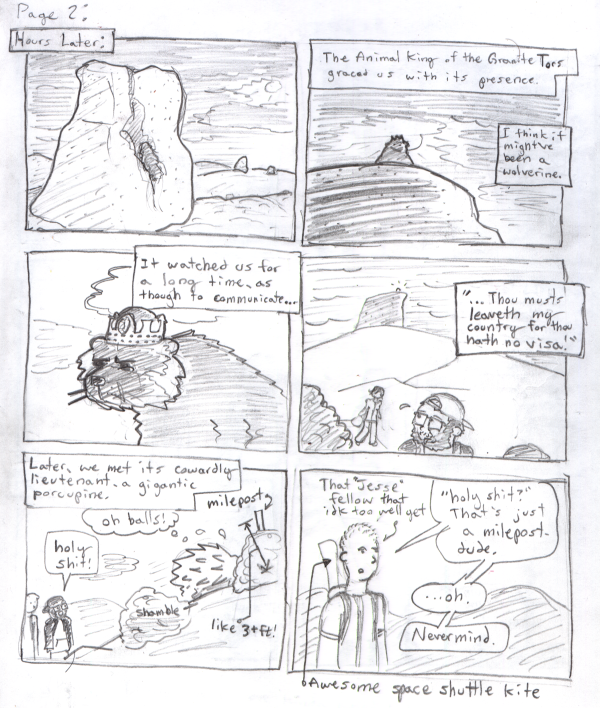 Page 2:
Hours Later:
The Animal King of the Granite Tors
graced us with its presence.
I think it
might've
been a
wolverine.
It watched us for
a long time, as
though to communicate...
"...Thou musts
leaveth my
country for thou
hath no visa!"
Later, we met its cowardly
lieutenant- a gigantic
porcupine.
mileposts
oh balls!
holy
shit!
shamble
like 3+ft!
That "Jesse"
fellow that
idk too well yet
"holy shit?"
That's just
a milepost-
dude.
...oh.
Nevermind.
Awesome space shuttle kite